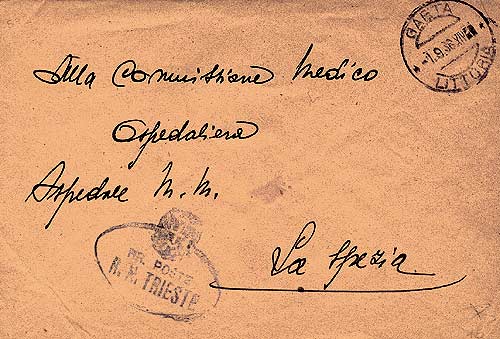 GAETA
-1.9.36.XIV
* LITTORIA *
Alla Commissione Medico
Ospedaliera
Ospedale M. M.
La Spezia
POSTE
R. N. TRIESTE